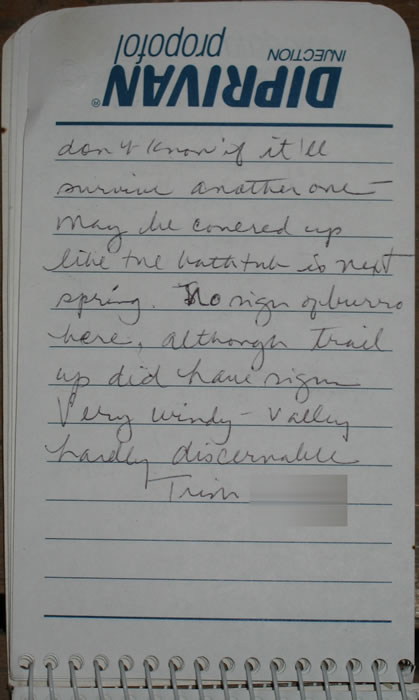 DIPRIVAN®
INJECTION
propofol
don't know if it'll
survive another one –
may be covered up
like the bathtub is next
spring. No sign of burro
here, although trail
up did have sign
Very windy – valley
hardly discernable
Trish